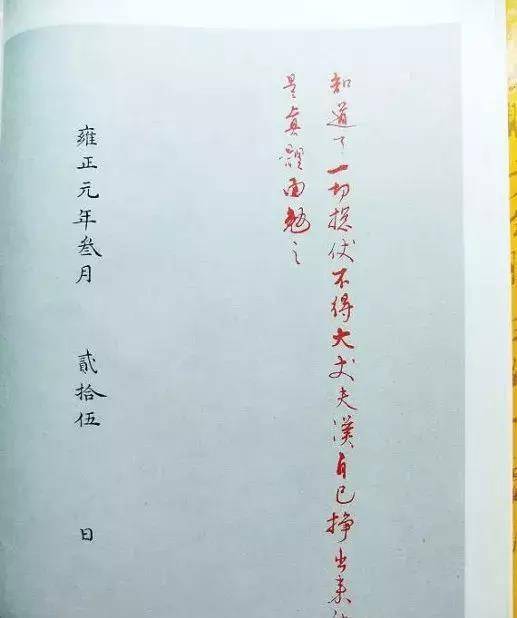 知道了一切揔仗不得大丈夫漢自己掙出來
是真體面勉之
雍正元年叁月 貳拾伍 日